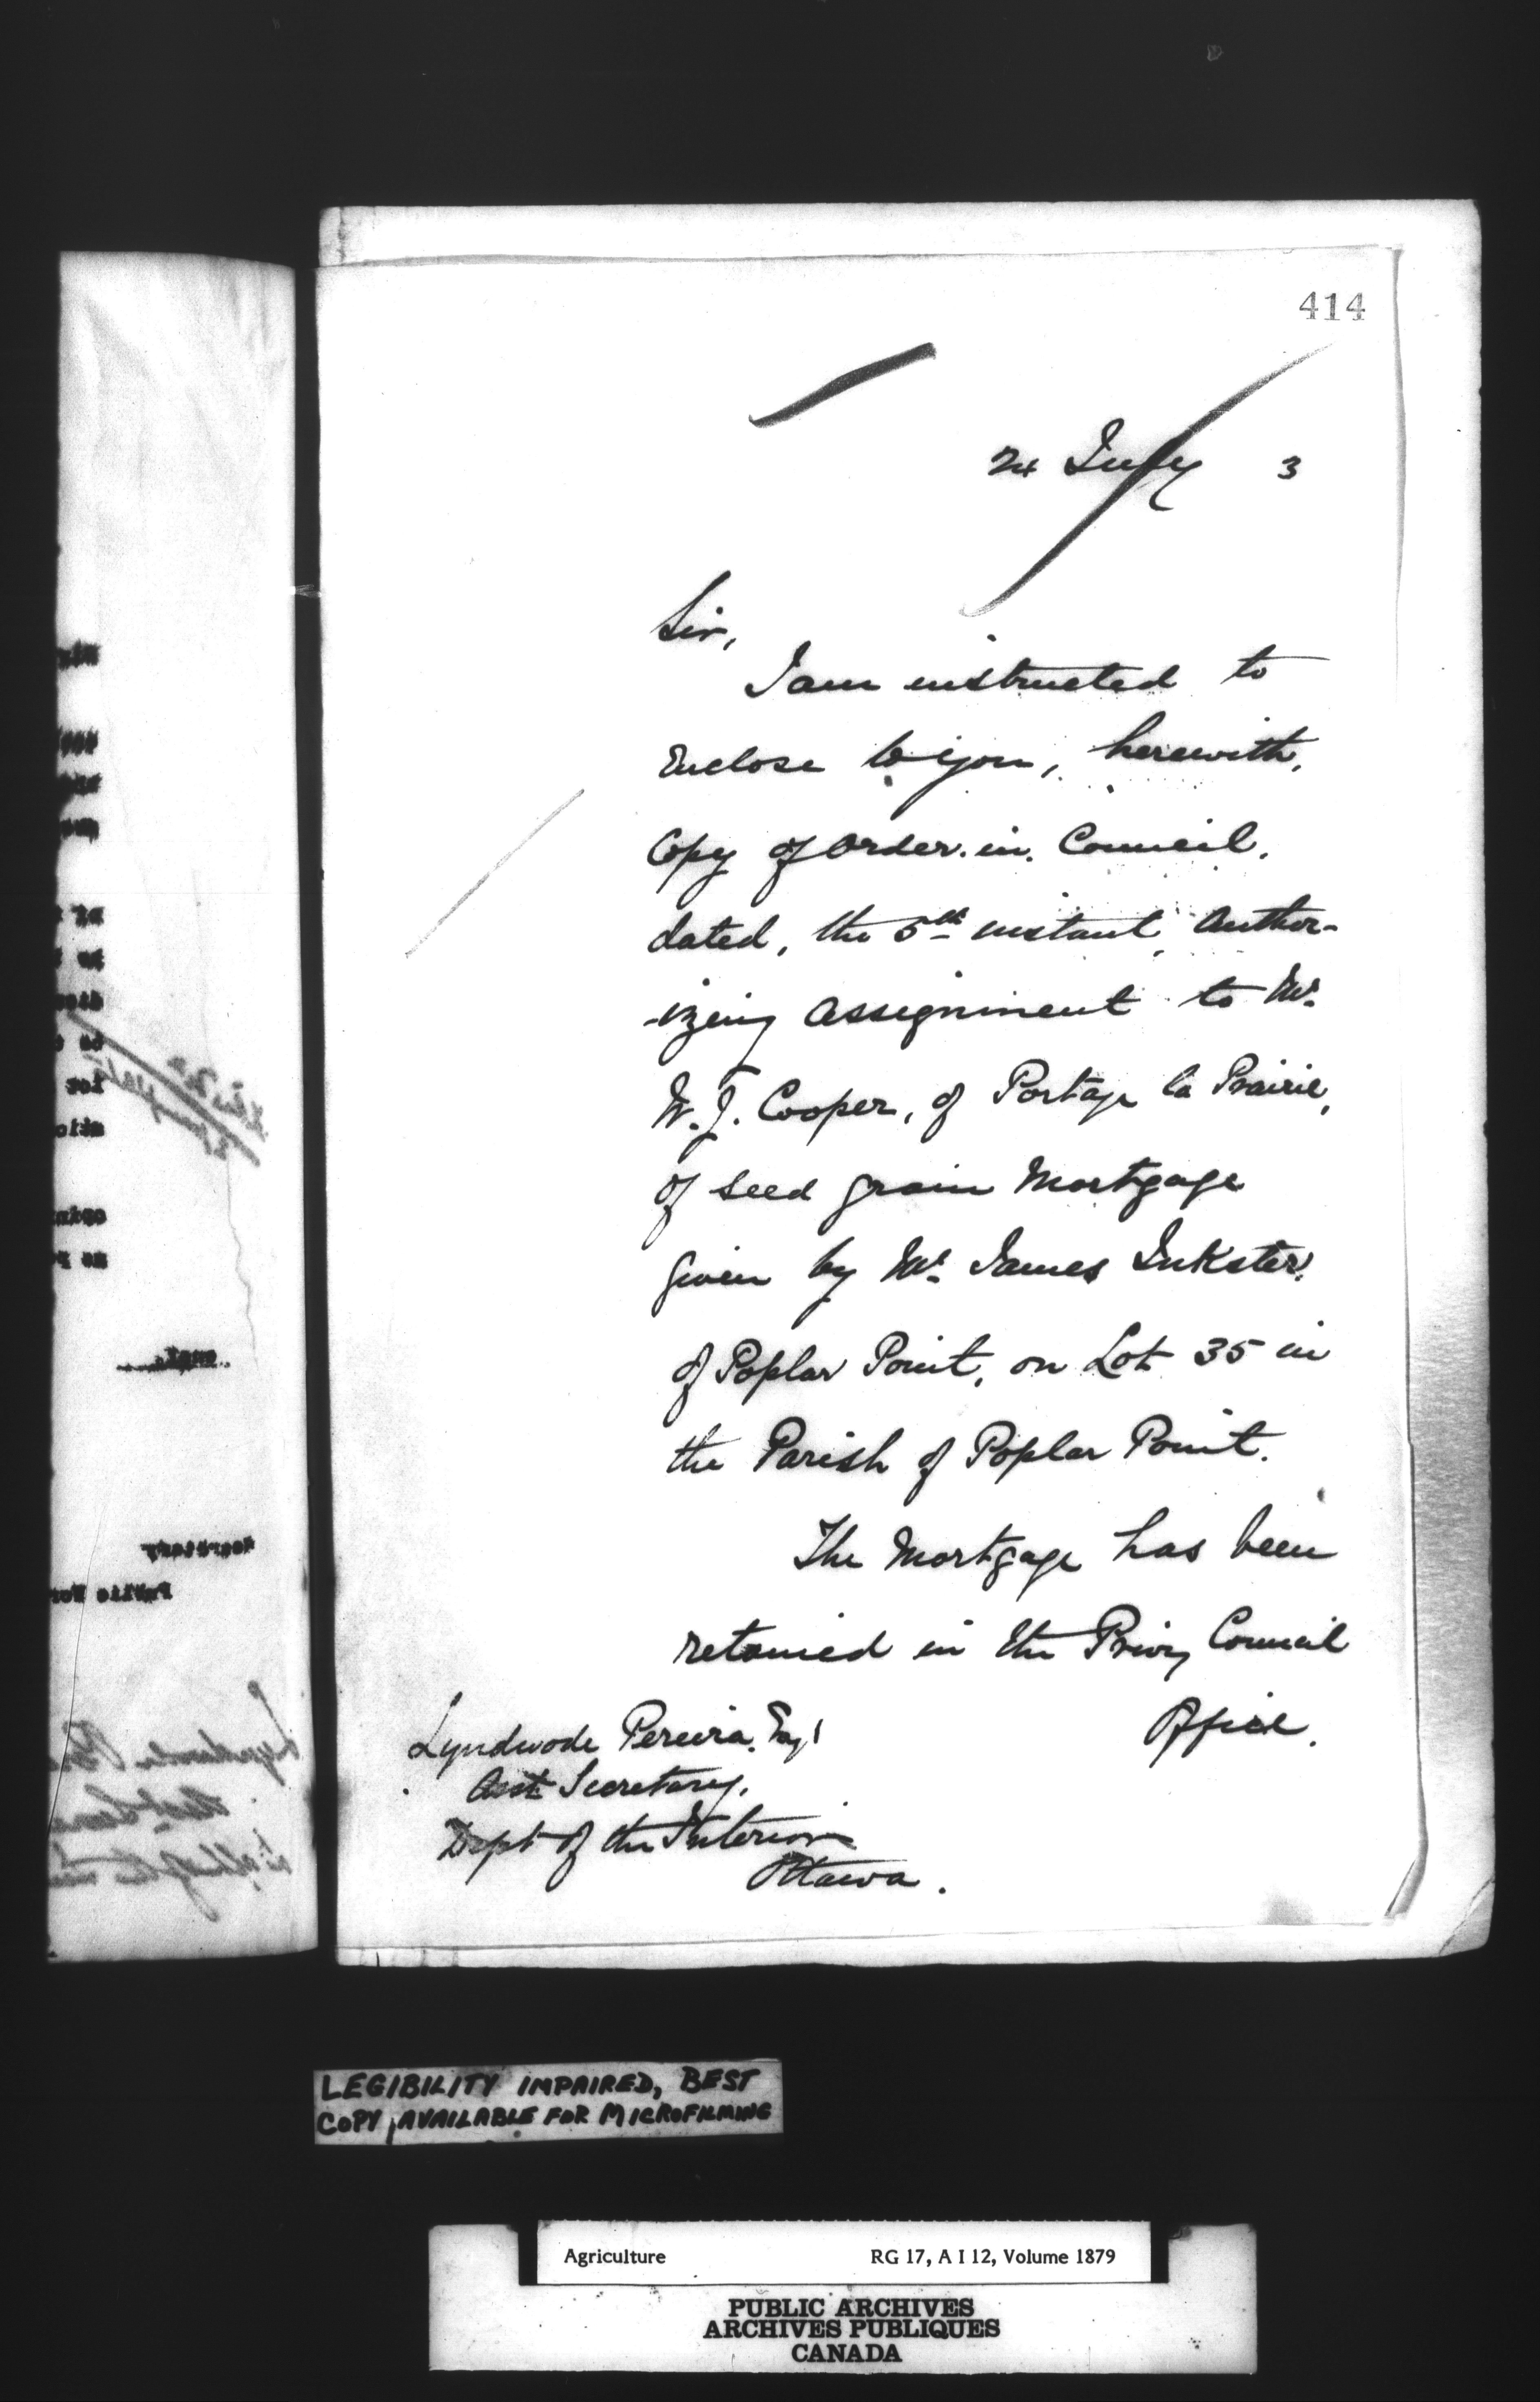 414
24 July 3
Sir,
I am instructed to
Enclose to you, herewith,
Copy of Order. in. Council.
dated, the 5th instant, Author-
-izing Assignment to Mr.
W. J. Cooper, of Portage la Prairie,
of Seed Grain Mortgage
given by Mr. James Inkster,
of Poplar Point, on Lot 35 in
the Parish of Poplar Point.
The Mortgage has been
retained in the Privy Council
Office.
Lyndwode Pereira, Esq.
Asst Secretary,
Dept of the Interior
Ottawa.
Secretary
Public Wor
LEGIBILITY IMPAIRED, BEST
COPY AVAILABLE FOR MICROFILMING
Agriculture RG 17, A I 12, Volume 1879
PUBLIC ARCHIVES
ARCHIVES PUBLIQUES
CANADA